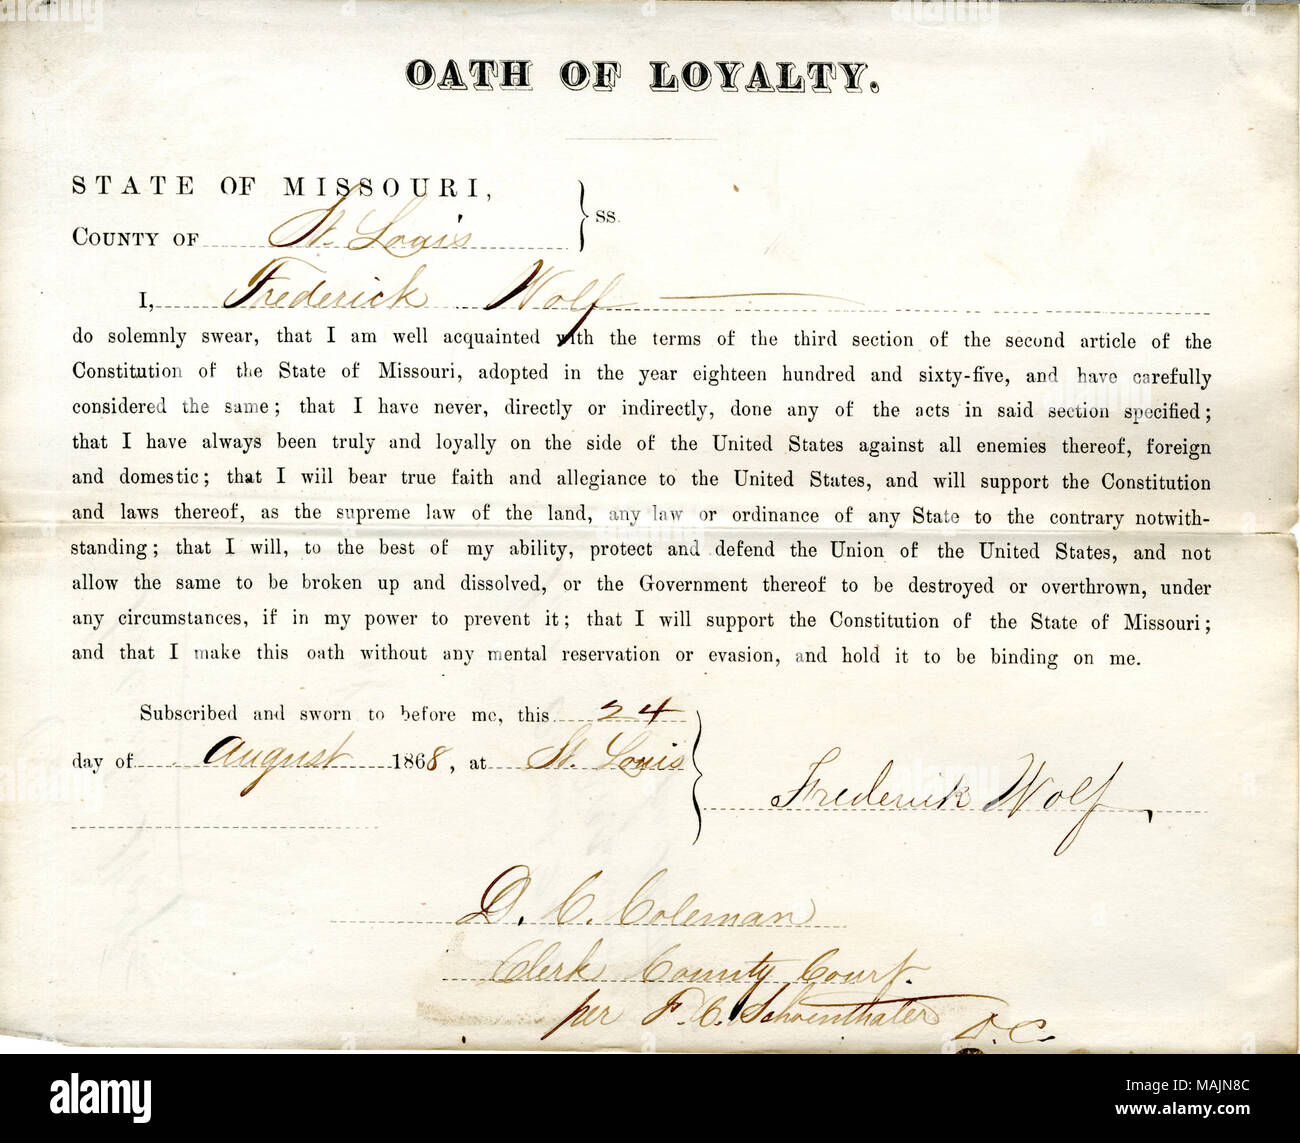 OATH OF LOYALTY.
STATE OF MISSOURI,
COUNTY OF St. Louis } SS.
I, Frederick Wolf
do solemnly swear, that I am well acquainted with the terms of the third section of the second article of the
Constitution of the State of Missouri, adopted in the year eighteen hundred and sixty-five, and have carefully
considered the same; that I have never, directly or indirectly, done any of the acts in said section specified;
that I have always been truly and loyally on the side of the United States against all enemies thereof, foreign
and domestic; that I will bear true faith and allegiance to the United States, and will support the Constitution
and laws thereof, as the supreme law of the land, any law or ordinance of any State to the contrary notwith-
standing; that I will, to the best of my ability, protect and defend the Union of the United States, and not
allow the same to be broken up and dissolved, or the Government thereof to be destroyed or overthrown, under
any circumstances, if in my power to prevent it; that I will support the Constitution of the State of Missouri;
and that I make this oath without any mental reservation or evasion, and hold it to be binding on me.
Subscribed and sworn to before me, this 24
day of August 1868, at St. Louis
Frederick Wolf
D. C. Coleman
Clerk County Court.
per F. C. Schoenthaler D. C.
alamy
Image ID: MAJN8C
www.alamy.com